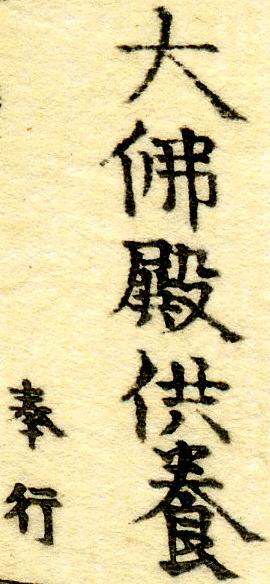 大佛殿供養
奉行